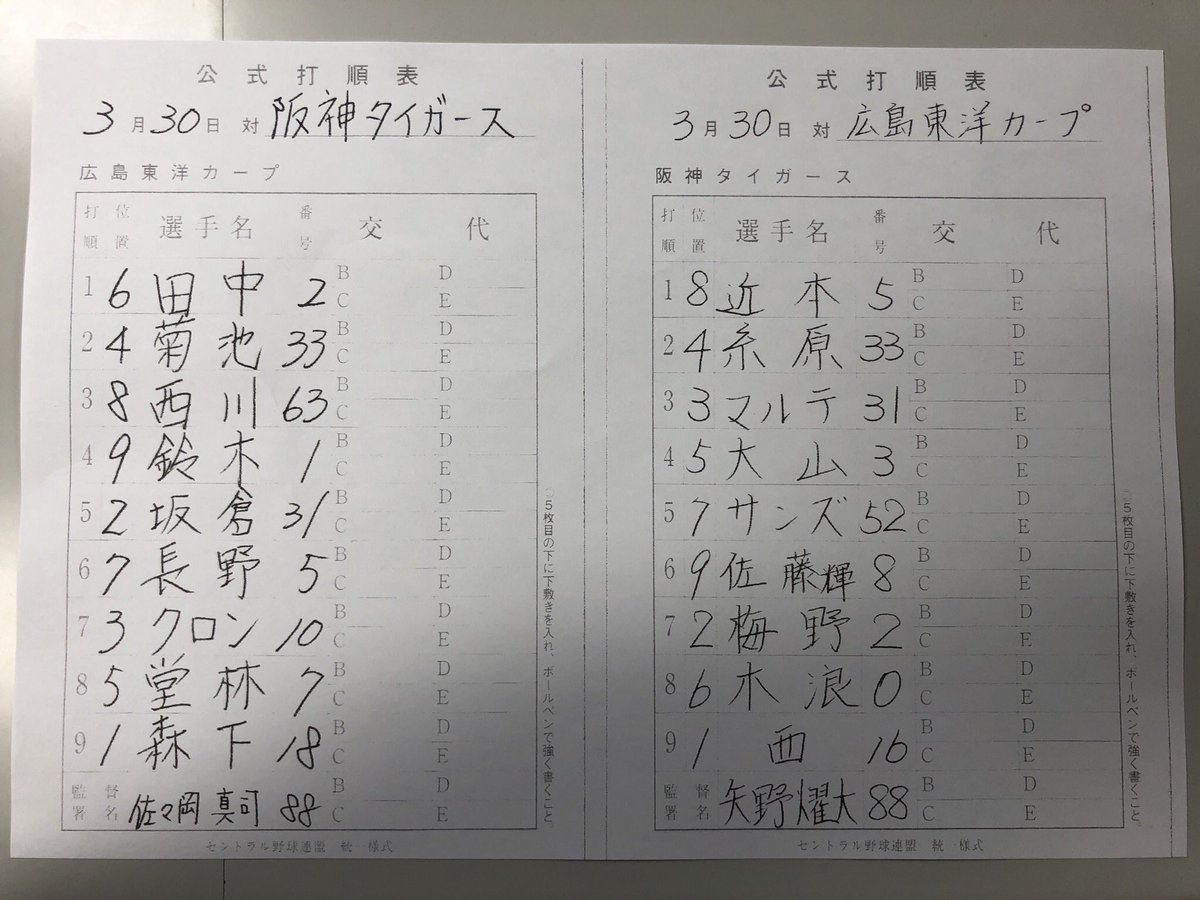 公式打順表
3月30日 対 阪神タイガース
広島東洋カープ
打順 位置 選手名 番号 交代
1 6 田中 2 B C D E
2 4 菊池 33 B C D E
3 8 西川 63 B C D E
4 9 鈴木 1 B C D E
5 2 坂倉 31 B C D E
6 7 長野 5 B C D E
7 3 クロン 10 B C D E
8 5 堂林 7 B C D E
9 1 森下 18 B C D E
監督署名 佐々岡真司 88 B C D E
○5枚目の下に下敷きを入れ、ボールペンで強く書くこと。
セントラル野球連盟 統一様式
公式打順表
3月30日 対 広島東洋カープ
阪神タイガース
打順 位置 選手名 番号 交代
1 8 近本 5 B C D E
2 4 糸原 33 B C D E
3 3 マルテ 31 B C D E
4 5 大山 3 B C D E
5 7 サンズ 52 B C D E
6 9 佐藤輝 8 B C D E
7 2 梅野 2 B C D E
8 6 木浪 0 B C D E
9 1 西 16 B C D E
監督署名 矢野燿大 88 B C D E
○5枚目の下に下敷きを入れ、ボールペンで強く書くこと。
セントラル野球連盟 統一様式